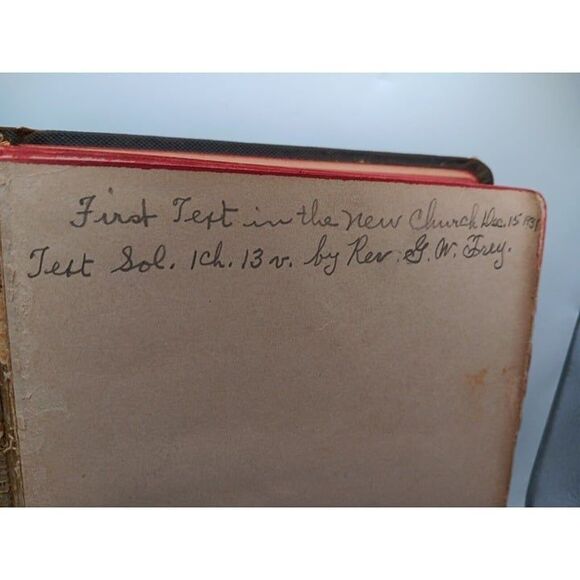 First Text in the new Church Dec. 15 1931
Text Sol. 1ch. 13 v. by Rev. G. W. Frey.